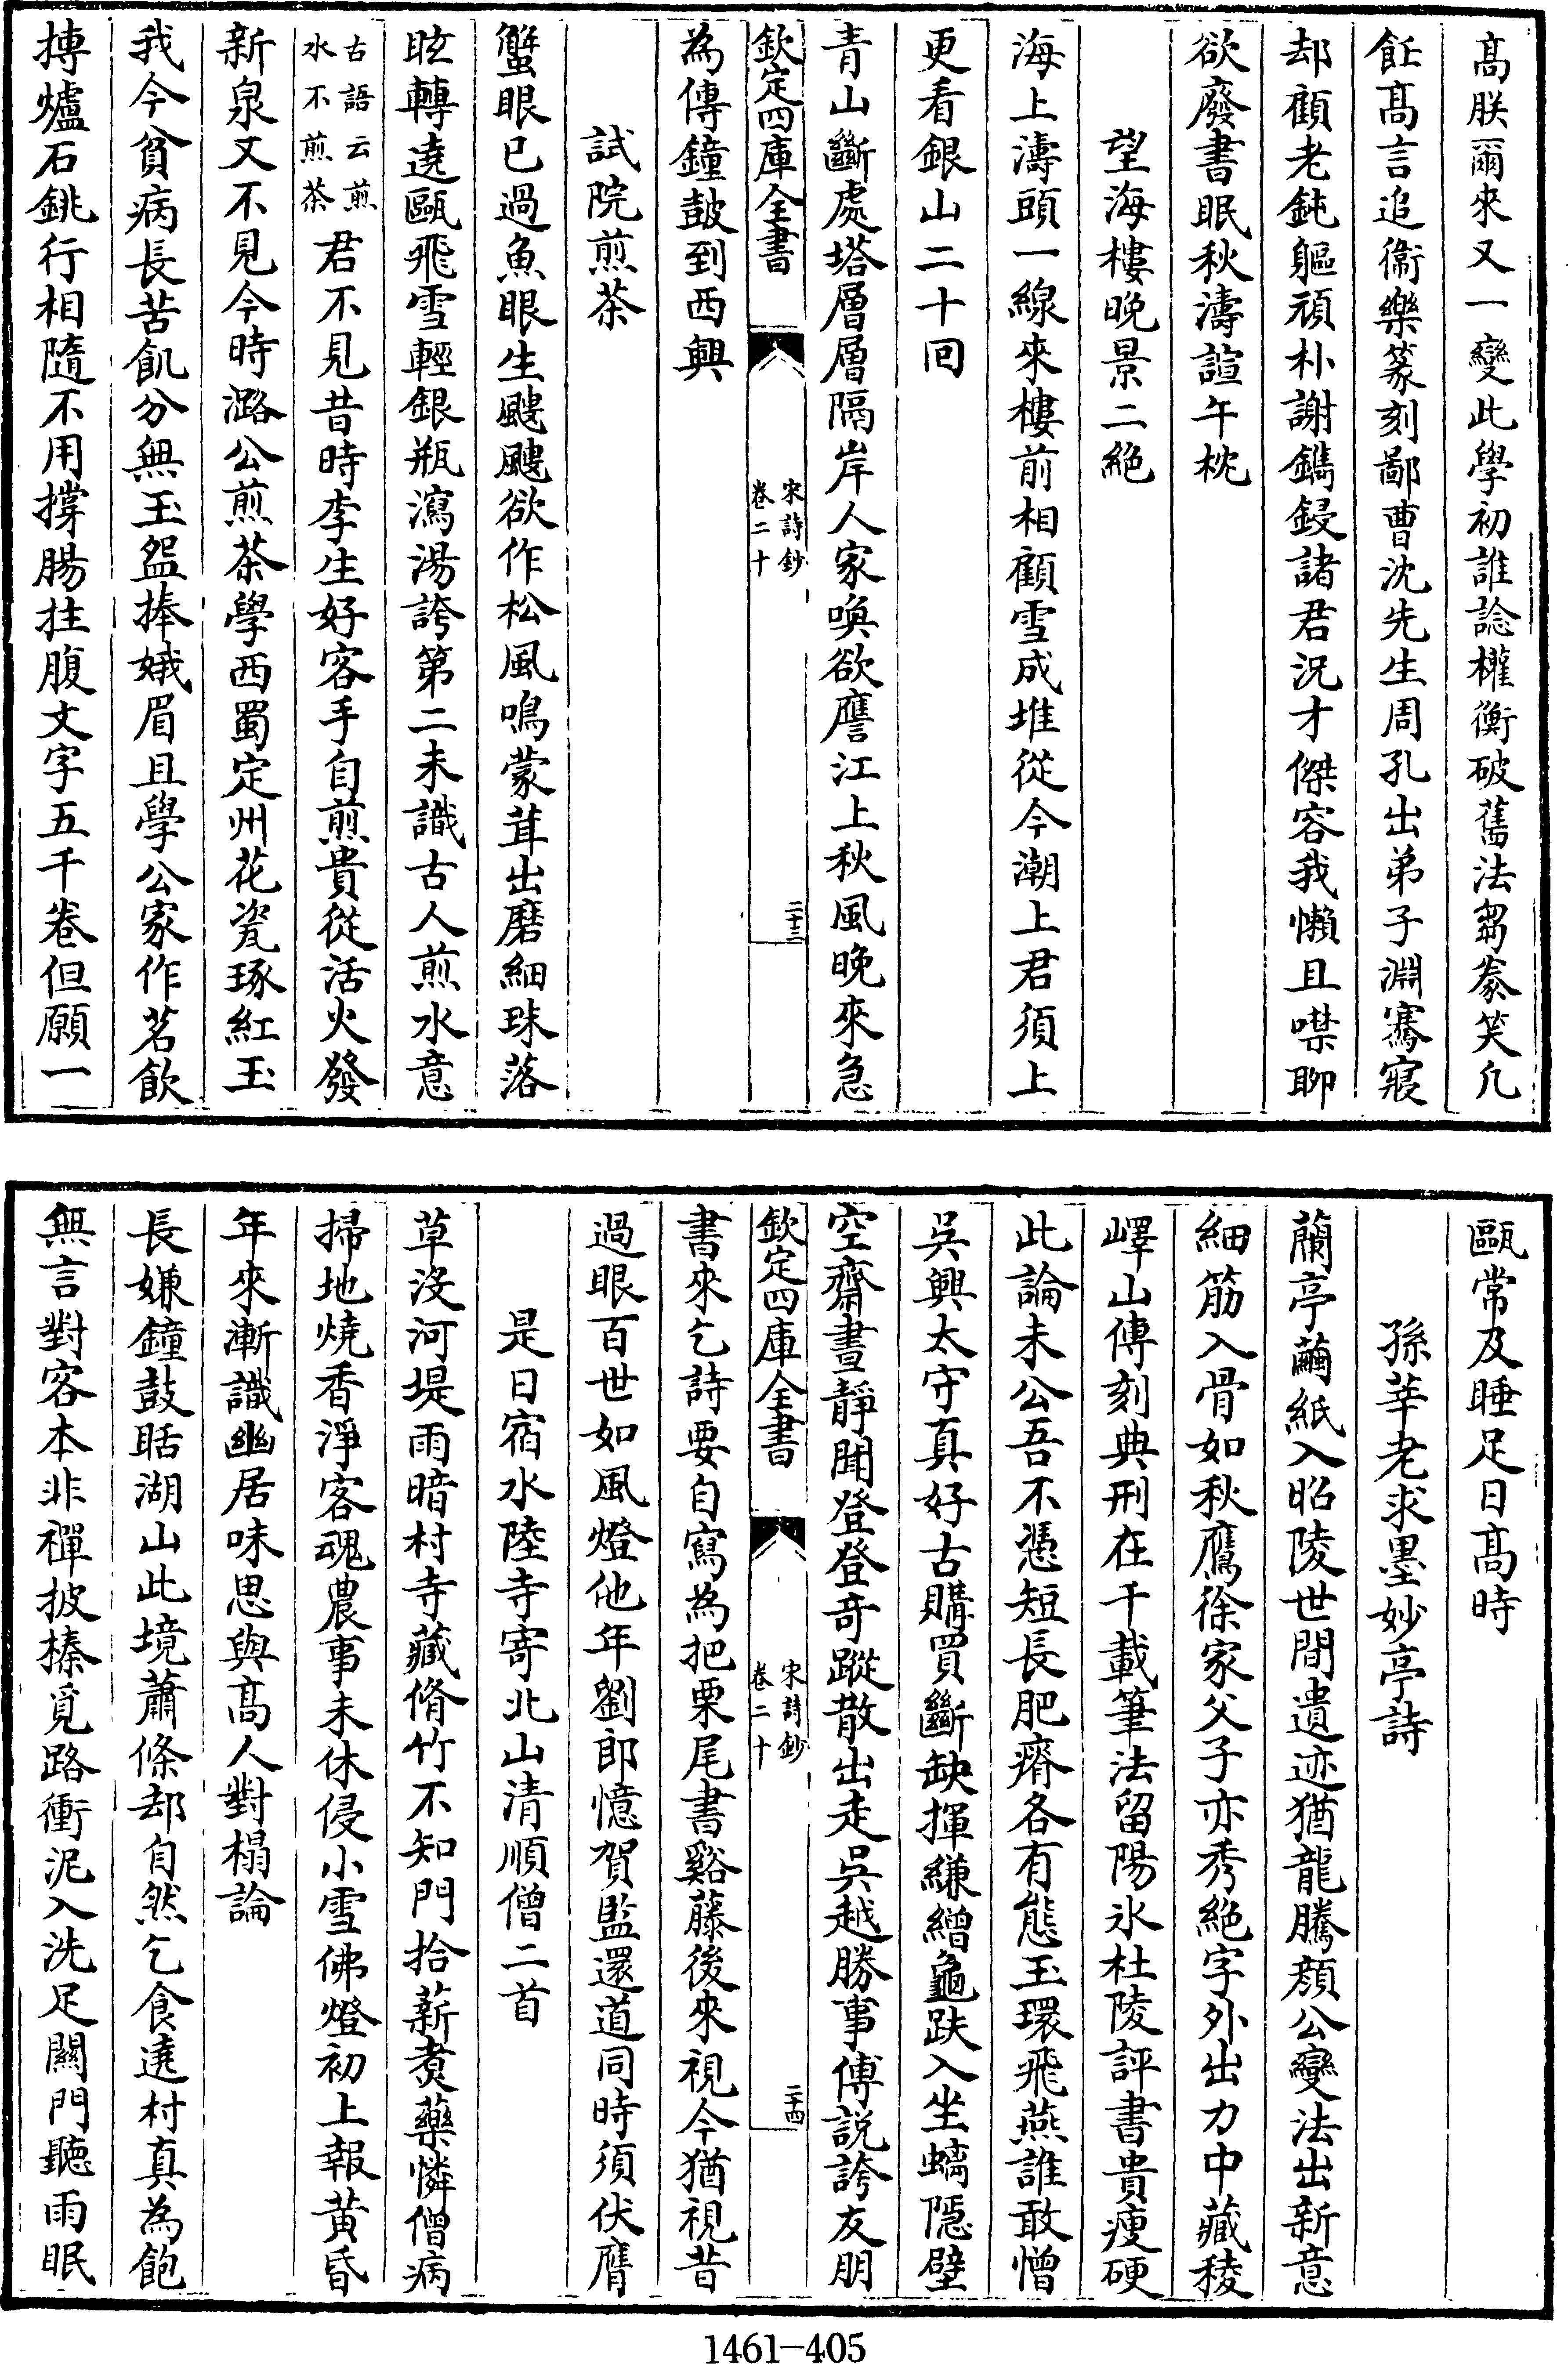 髙朕爾來又一變此學初誰諗權衡破舊法芻豢笑凡
飪髙言追衞樂篆刻鄙曹沈先生周孔出弟子淵騫寢
却顧老鈍軀頑朴謝鐫鋟諸君況才傑容我懶且噤聊
欲廢書眠秋濤諠午枕
望海樓晚景二絶
海上濤頭一線來樓前相顧雪成堆從今潮上君須上
更看銀山二十回
青山斷處塔層層隔岸人家喚欲譍江上秋風晚來急
欽定四庫全書
宋詩鈔
卷二十
二十三
為傳鐘鼓到西興
試院煎茶
蟹眼已過魚眼生颼颼欲作松風鳴蒙茸出磨細珠落
眩轉遶甌飛雪輕銀瓶瀉湯誇第二未識古人煎水意
古語云煎水不煎茶君不見昔時李生好客手自煎貴從活火發
新泉又不見今時潞公煎茶學西蜀定州花瓷琢紅玉
我今貧病長苦飢分無玉盌捧娥眉且學公家作茗飲
摶爐石銚行相隨不用撐腸拄腹文字五千卷但願一
甌常及睡足日髙時
孫莘老求墨妙亭詩
蘭亭繭紙入昭陵世間遺迹猶龍騰顔公變法出新意
細筋入骨如秋鷹徐家父子亦秀絶字外出力中藏稜
嶧山傳刻典刑在千載筆法留陽氷杜陵評書貴瘦硬
此論未公吾不憑短長肥瘠各有態玉環飛燕誰敢憎
吳興太守真好古購買斷缺揮縑繒龜趺入坐螭隱壁
空齋晝靜聞登登奇蹤散出走吳越勝事傳説誇友朋
欽定四庫全書
宋詩鈔
卷二十
二十四
書來乞詩要自寫為把栗尾書谿藤後來視今猶視昔
過眼百世如風燈他年劉郎憶賀監還道同時須伏膺
是日宿水陸寺寄北山清順僧二首
草沒河堤雨暗村寺藏脩竹不知門拾薪煑藥憐僧病
掃地燒香淨客魂農事未休侵小雪佛燈初上報黄昏
年來漸識幽居味思與髙人對榻論
長嫌鐘鼓聒湖山此境蕭條却自然乞食遶村真為飽
無言對客本非禪披榛覓路衝泥入洗足關門聽雨眠
1461-405